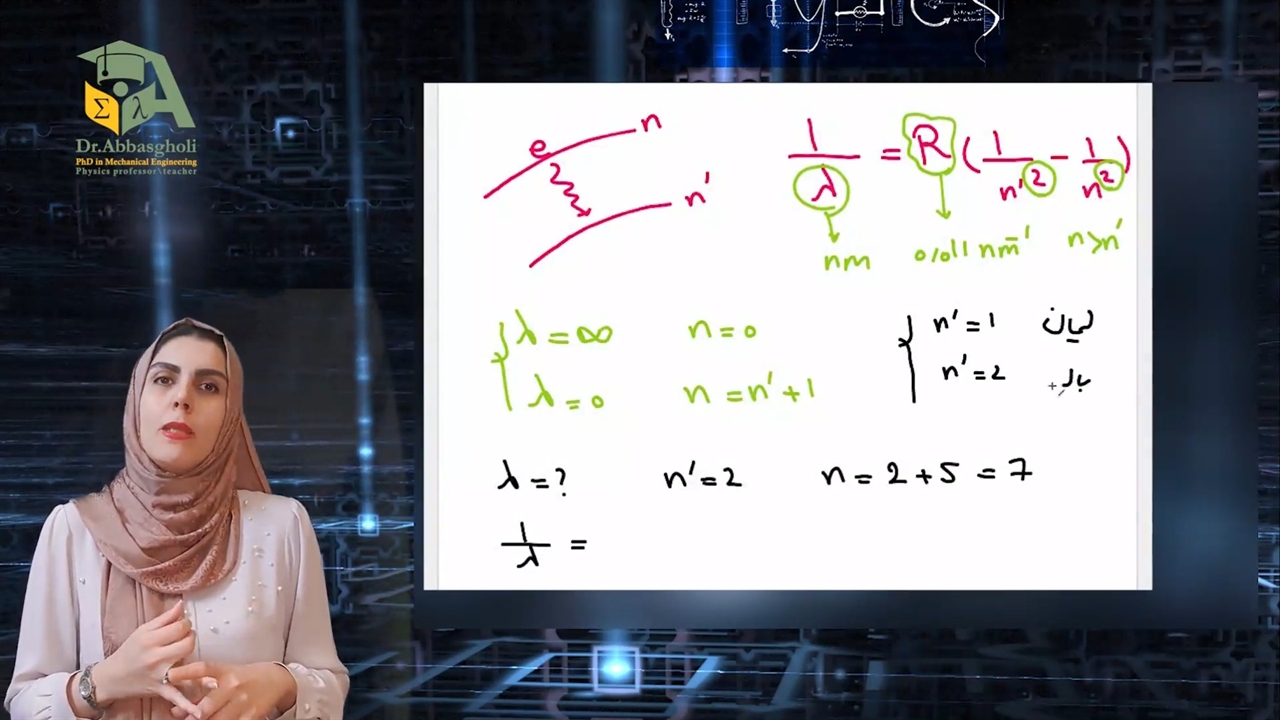 Dr.Abbasgholi
PhD in Mechanical Engineering
Physics professor\teacher
Σ λ
e n
n'
1/λ = R (1/n'² - 1/n²)
nm 0/011 nm⁻¹ n>n'
λ = ∞ n = 0
λ = 0 n = n' + 1
n' = 1 لیمان
n' = 2 بالمر
λ = ? n' = 2 n = 2 + 5 = 7
1/λ =